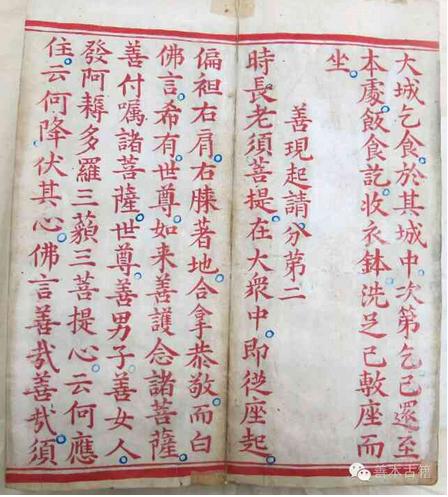 大城乞食於其城中次第乞已還至
本處飯食訖收衣鉢洗足已敷座而
坐
善現起請分第二
時長老須菩提在大衆中即從座起
偏袒右肩右膝著地合拿恭敬而白
佛言希有世尊如来善護念諸菩薩
善付囑諸菩薩世尊善男子善女人
發阿耨多羅三藐三菩提心云何應
住云何降伏其心佛言善哉善哉須
善本古籍